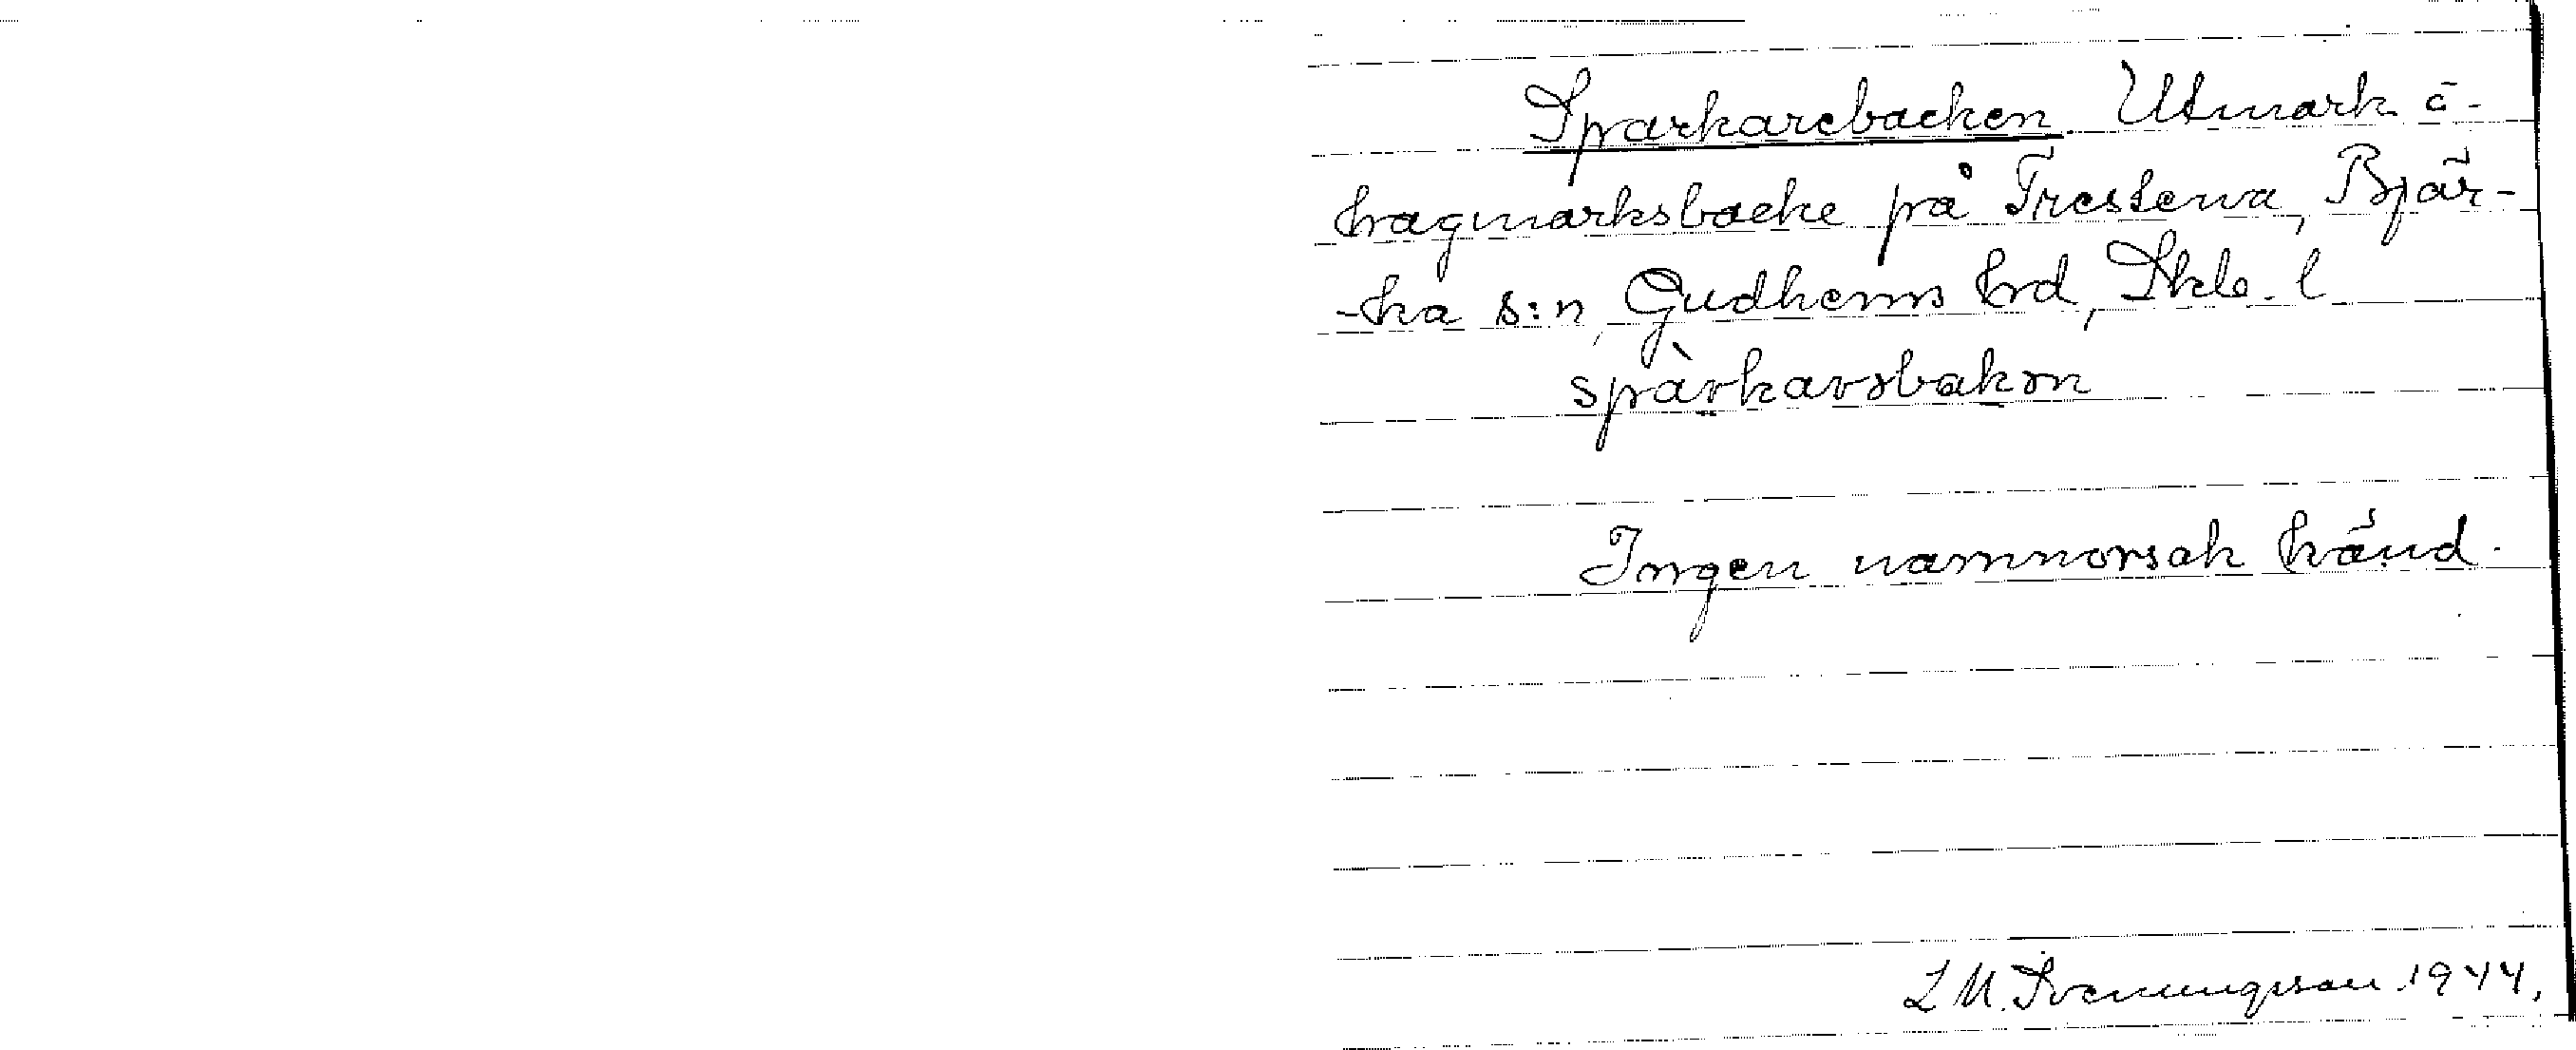 Sparkarebacken. Utmark o-
hagmarksbacke på Trestena, Bjär-
-ka s:n, Gudhems hrd, Skb. l
spàrkarəbakən
Ingen namnorsak känd.
L M. Svenungsson 1944.